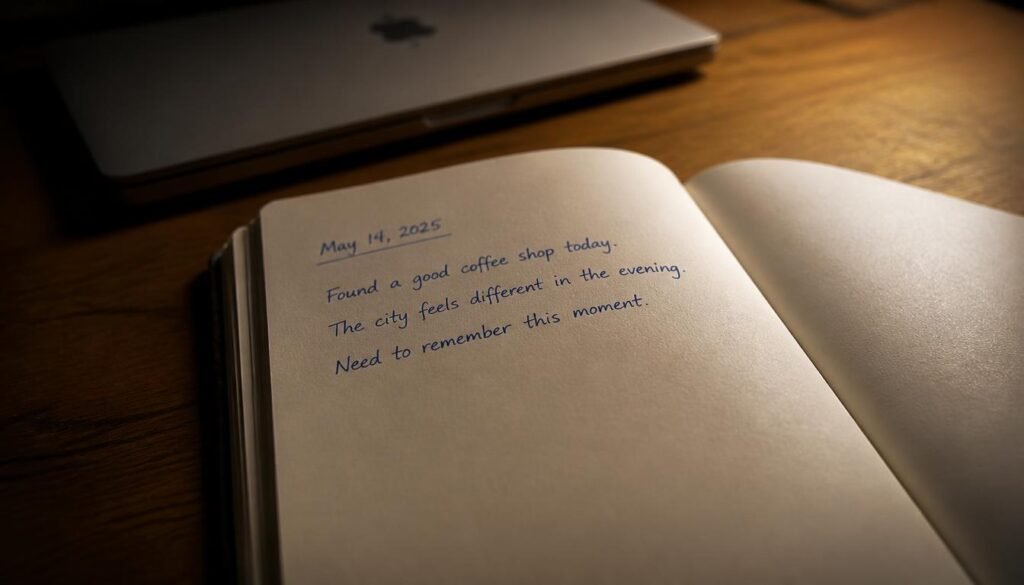 May 14, 2025
Found a good coffee shop today.
The city feels different in the evening.
Need to remember this moment.